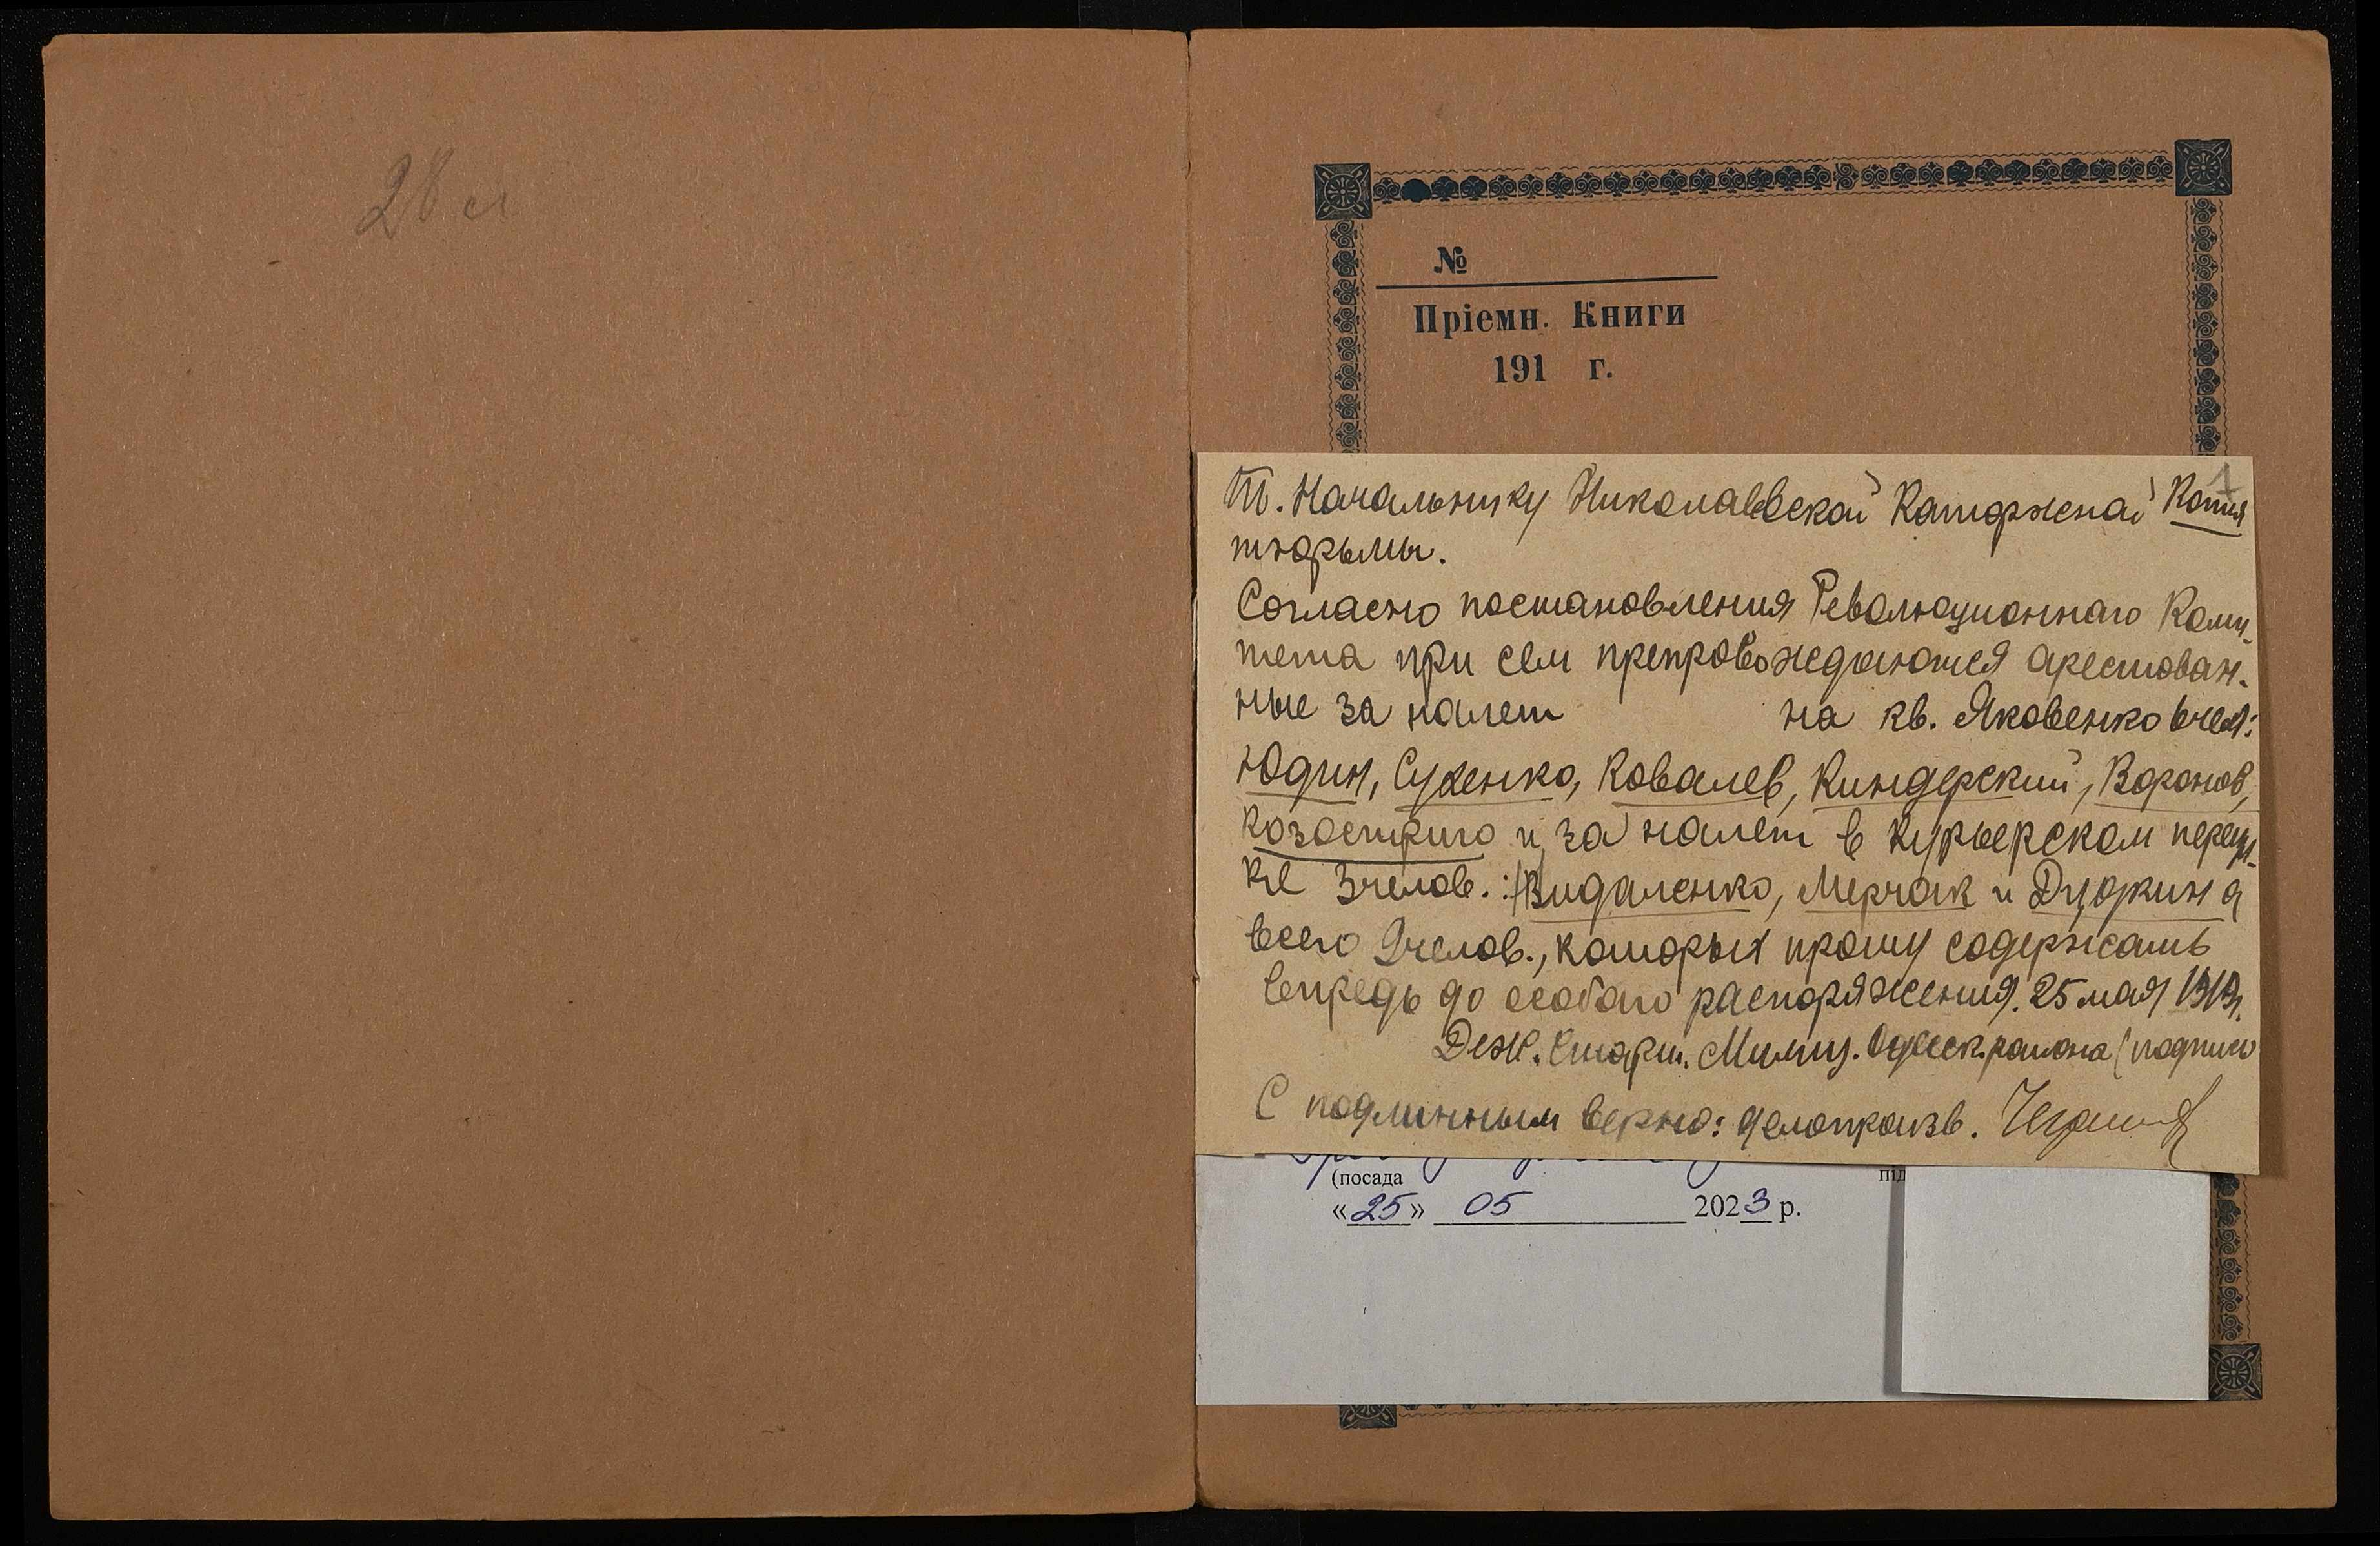 28 л
№
Пріемн. Книги
191 г.
1
Т. Начальнику Николаевской Каторжной Копия
тюрьмы.
Согласно постановления Революционнаго Коми-
тета при сем препровождаются арестован-
ные за налет на кв. Яковенко 6 чел:
Юдин, Сухенко, Ковалев, Киндерский, Воронов,
и за налет в Курьерском переул-
ке 3 челов.: Видаленко, Мерчак и
всего 9 челов., которых прошу содержать
впредь до особаго распоряжения. 25 мая 1919 г.
Деж. Старш. Милиц. Одесск. района (подпись
С подлинным верно: делопроизв.
(посада
під
«25» 05 2023 р.